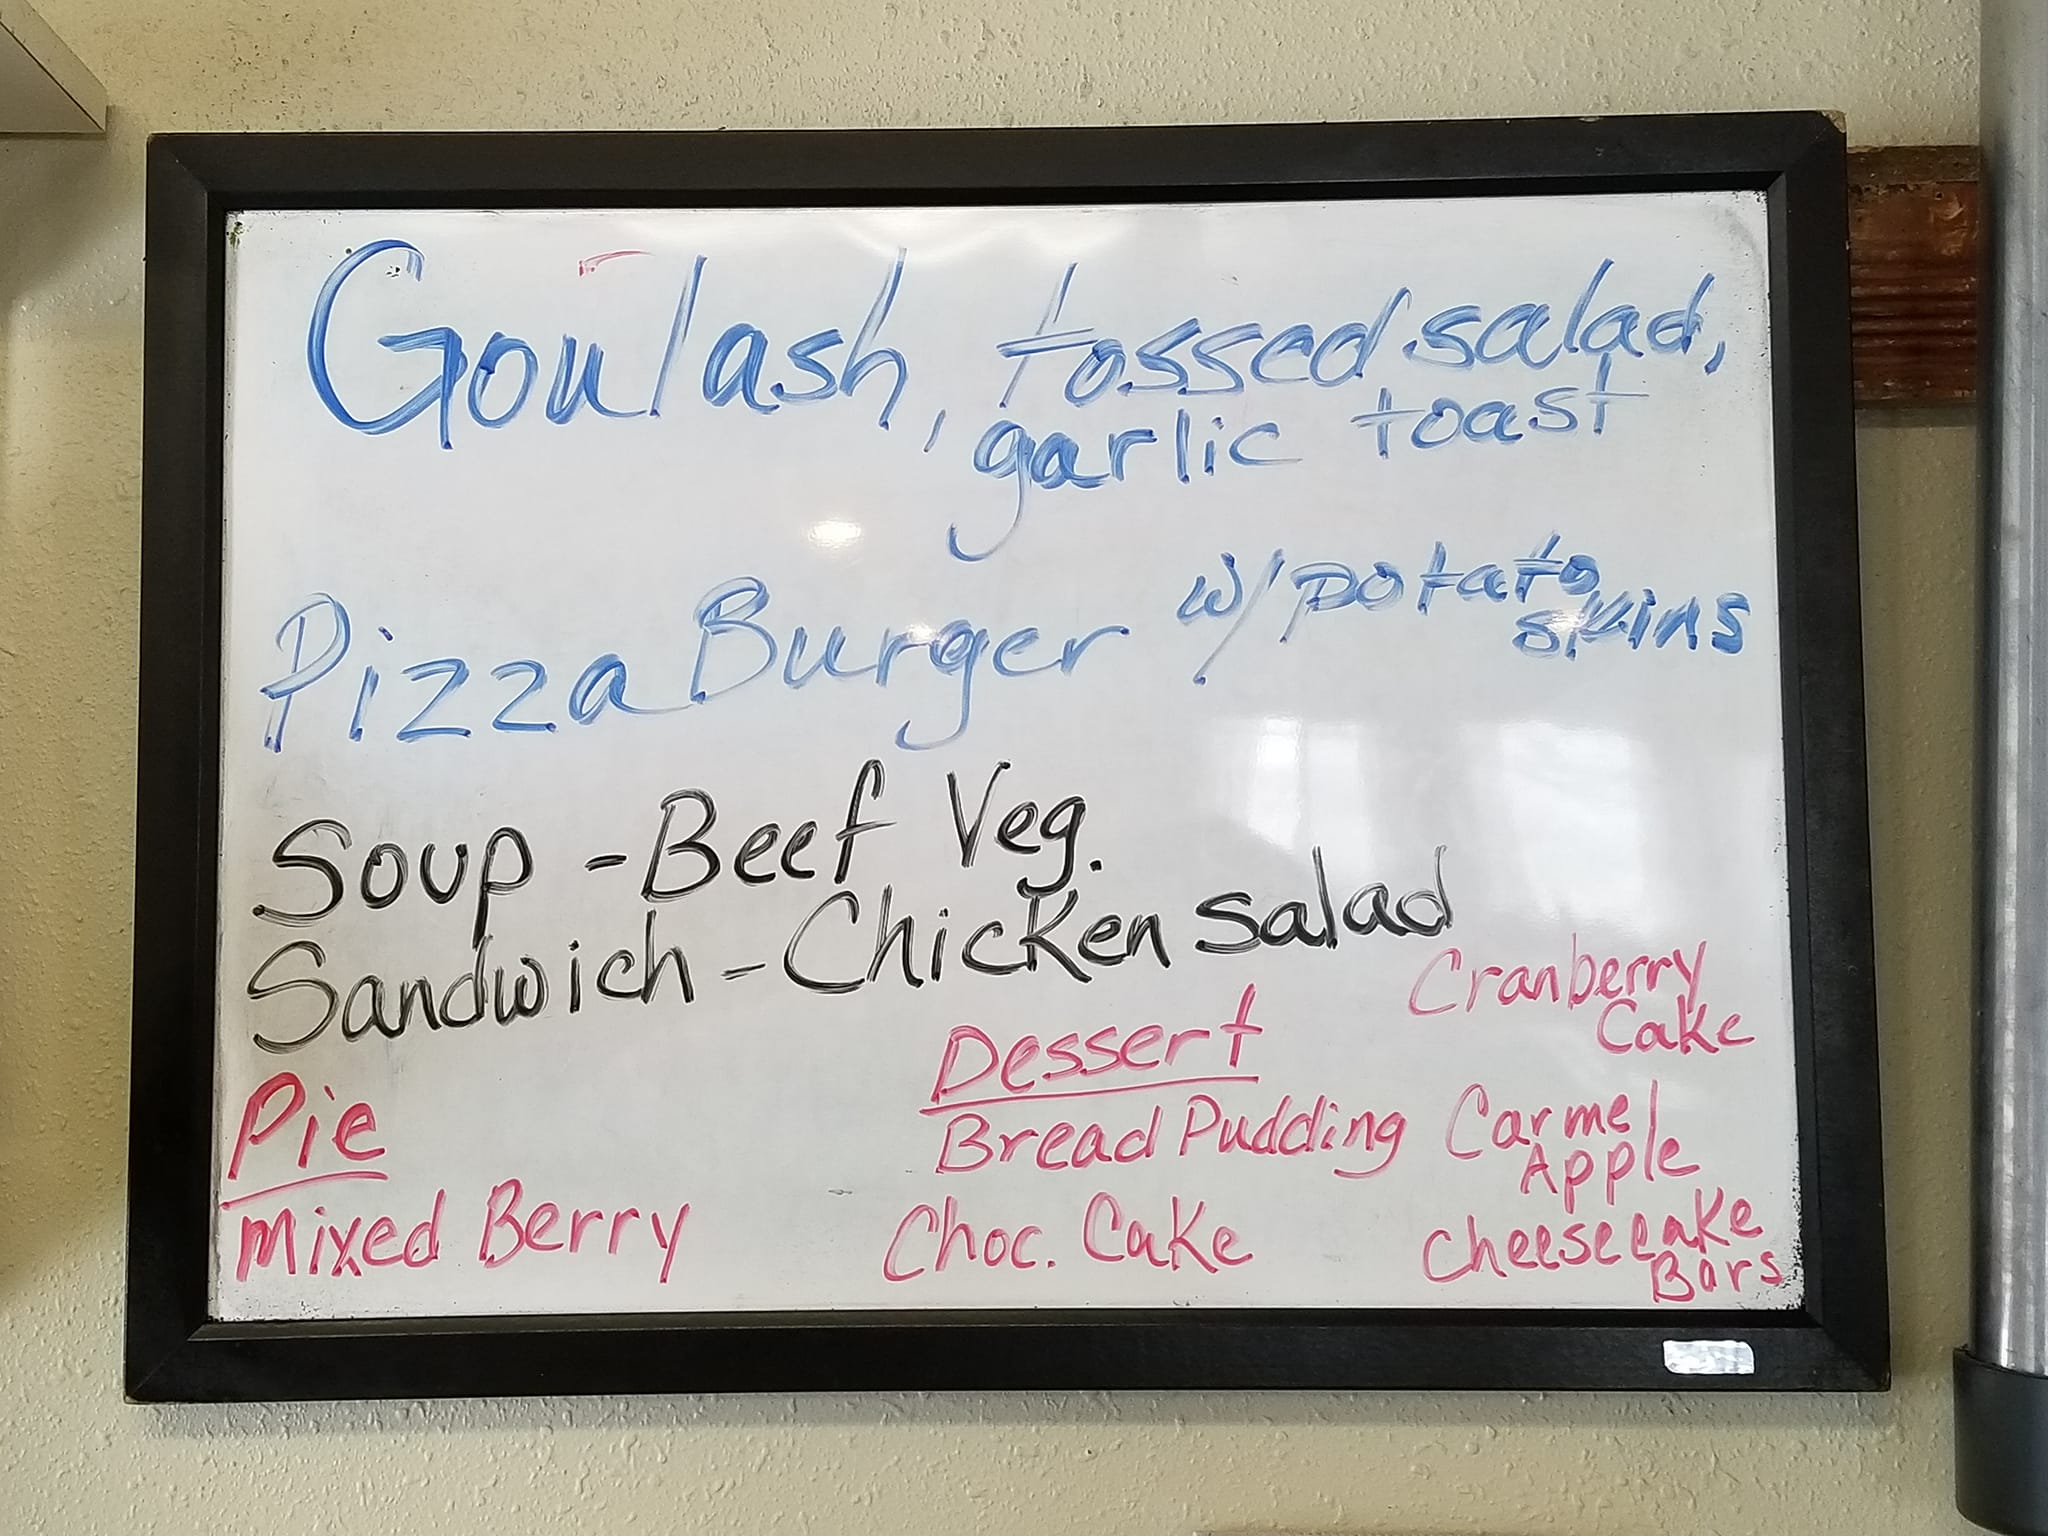 Goulash, tossed salad,
garlic toast
Pizza Burger w/ potato
skins
Soup - Beef Veg.
Sandwich - Chicken salad
Pie
Mixed Berry
Dessert
Bread Pudding
Choc. Cake
Cranberry
Cake
Carmel
Apple
Cheesecake
Bars